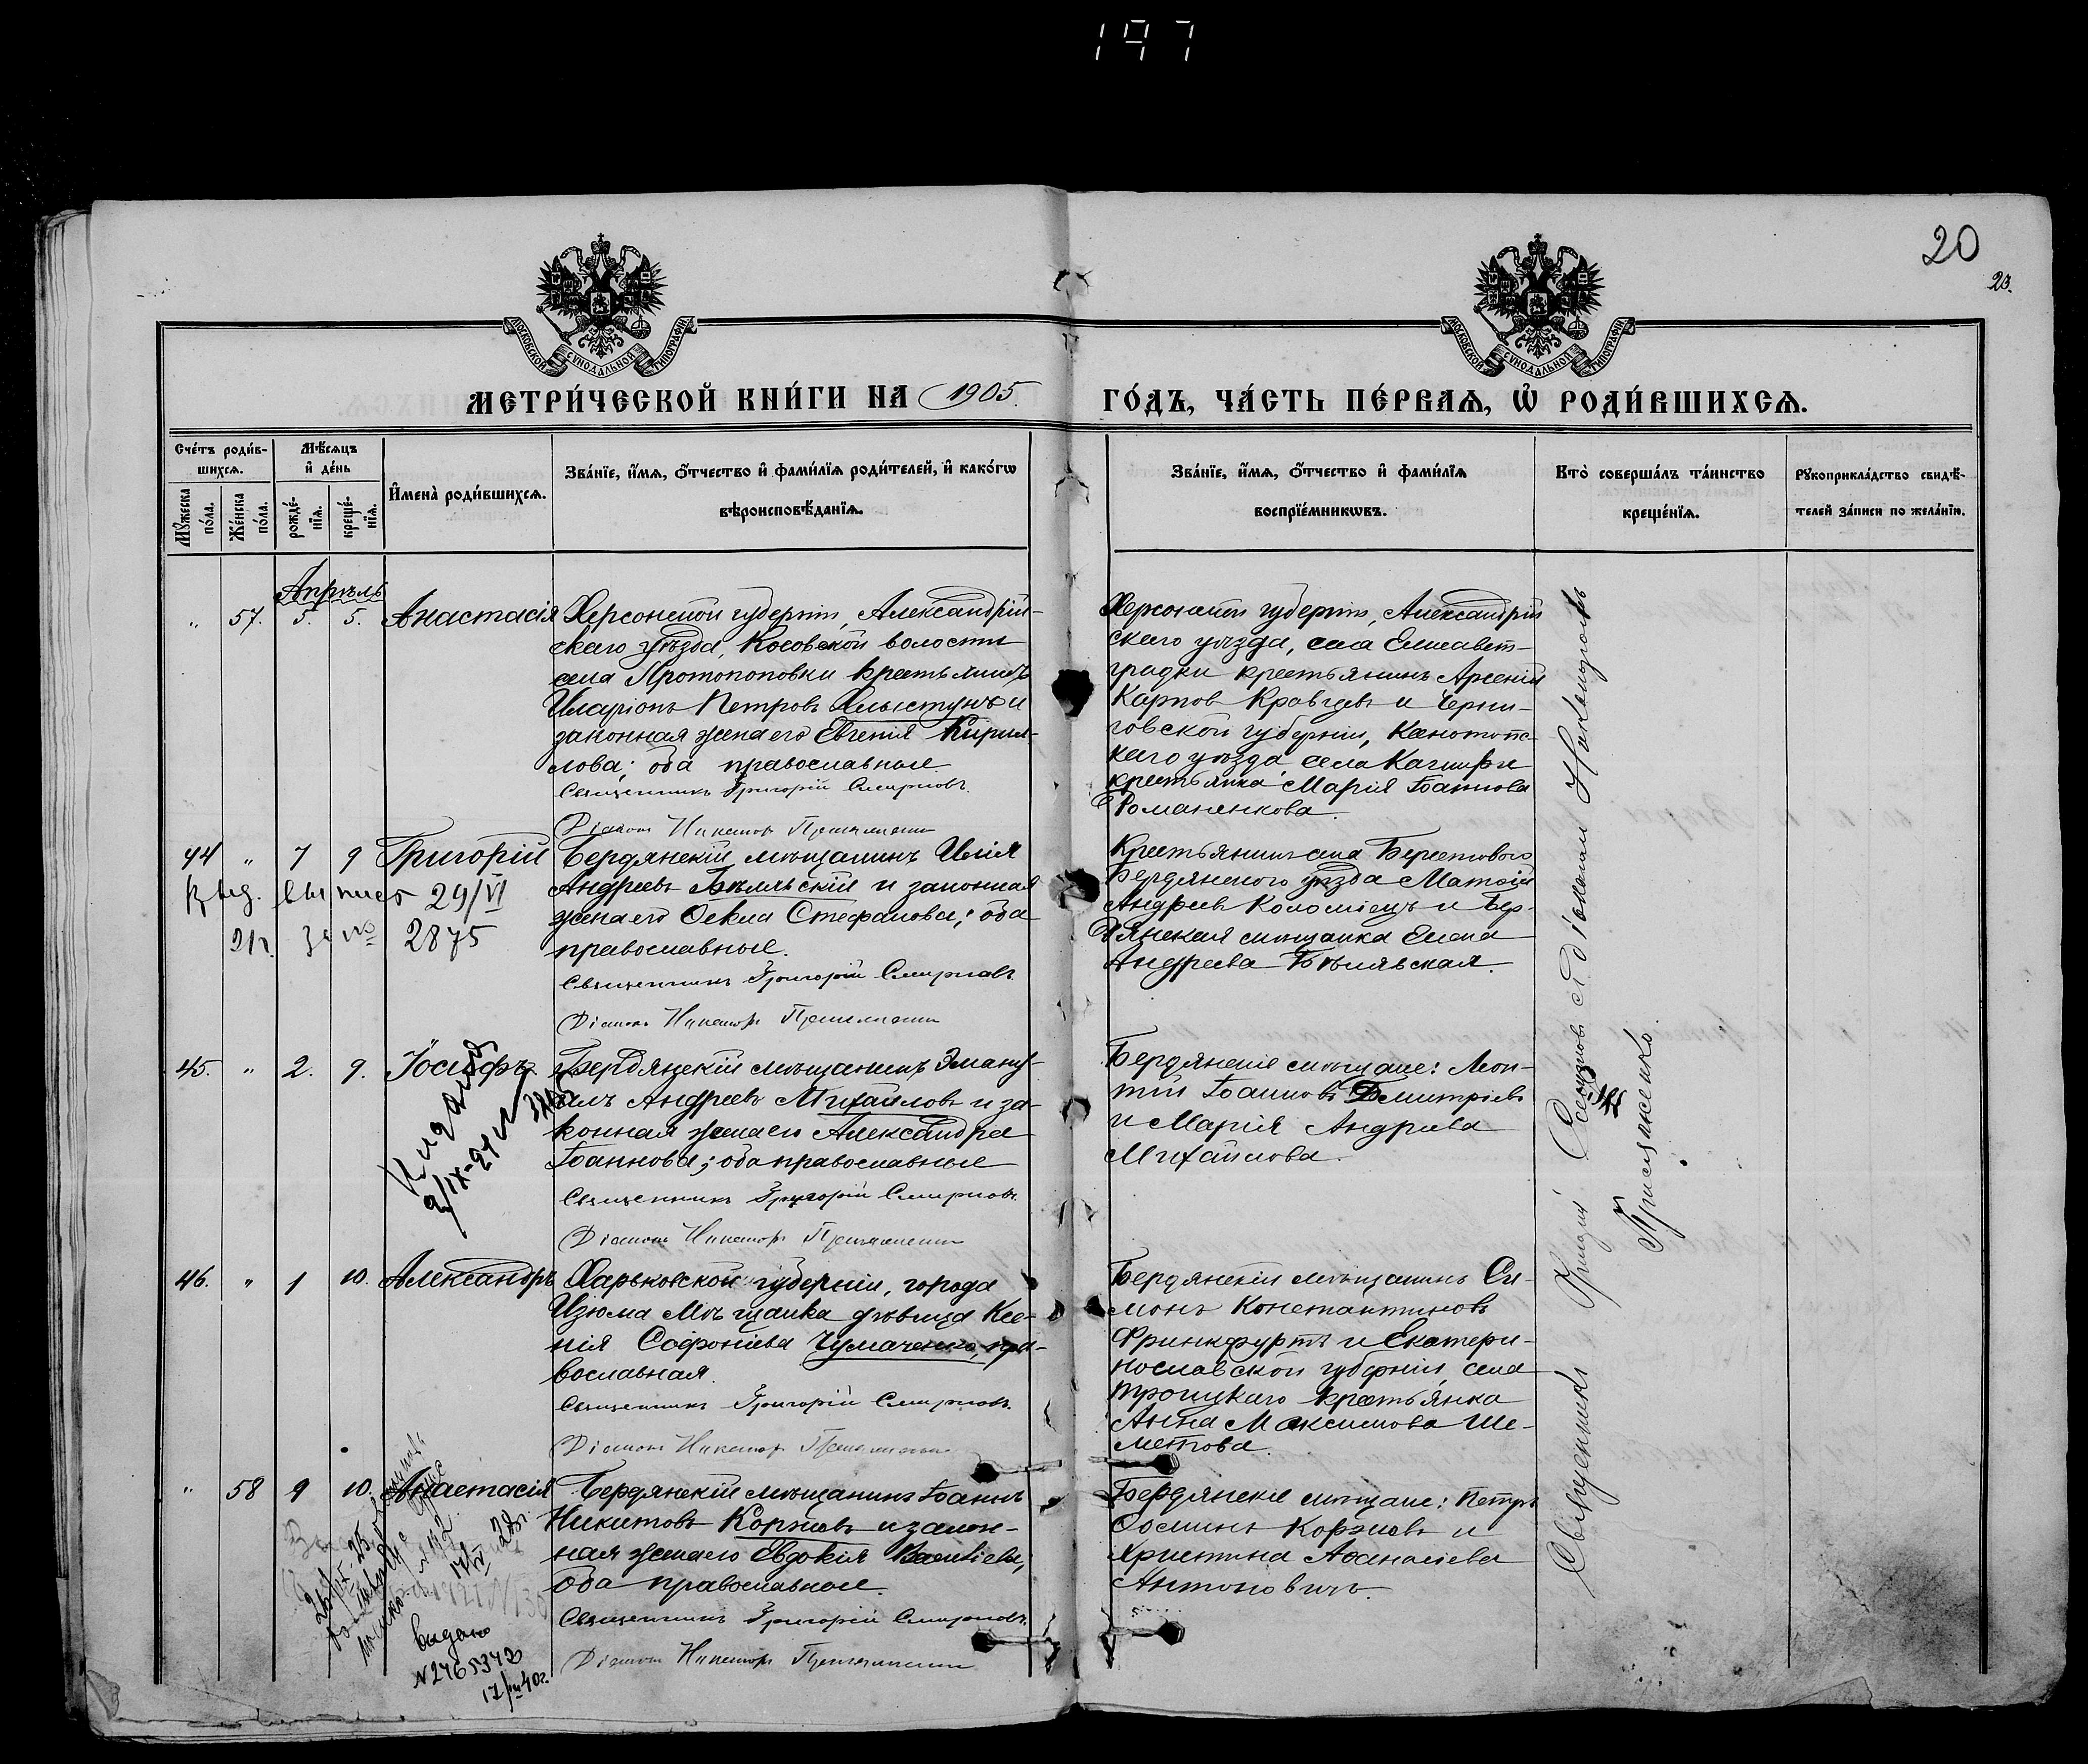 197
20
20.
МОСКОВСКОЙ СѴНОДАЛЬНОЙ ТИПОГРАФІИ.
МОСКОВСКОЙ СѴНОДАЛЬНОЙ ТИПОГРАФІИ.
МЕТРИ́ЧЕСКОЙ КНИ́ГИ НА 1905.
ГО́ДЪ, ЧА́СТЬ ПЕ́РВАѦ, Ѡ҆ РОДИ́ВШИХСѦ.
Сче́тъ роди́в-
шихсѧ.
Мѣ́сѧцъ
и҆ де́нь
Мꙋ́жеска
по́ла.
Же́нска
по́ла.
рожде́-
нїѧ.
креще́-
нїѧ.
И҆мена̀ роди́вшихсѧ.
Зва́нїе, и҆́мѧ, о҆́тчество и҆ фами́лїѧ роди́телей, и҆ како́гѡ
вѣроисповѣ́данїѧ.
Зва́нїе, и҆́мѧ, о҆́тчество и҆ фами́лїѧ
воспрїе́мникѡвъ.
Кто̀ соверша́лъ та́инство
креще́нїѧ.
Рꙋкоприкла́дство свидѣ́-
телей за́писи по жела́нїю.
Апрѣль
" 57. 5. 5. Анастасія
Херсонской губерніи, Александрій-
скаго уѣзда, Косовской волости
села Протопоповки крестьянинъ
Иларіонъ Петровъ Хлыстунъ и
законная жена его Евгенія Кирил-
лова; оба православные.
Священникъ Григорій Смирновъ.
Діаконъ Никаноръ
Херсонской губерніи, Александрій
скаго уѣзда, села Елисавет-
градки крестьянинъ Арсеній
Карпов Кравцевъ и Черни-
говской губерніи, Канотопс-
каго уѣзда села
крестьянка Марія Іоаннова
Романенкова.
44 " 7 9 Григорій
выпись 29/VI
21г. за № 2875
Бердянскій мѣщанинъ Илія
Андреевъ Бѣлявскій и законная
жена его Ѳекла Стефанова; оба
православные.
Священникъ Григорій Смирновъ.
Діаконъ Никаноръ
Крестьянинъ села Берестового
Бердянского уѣзда Матѳій
Андреев Коломіецъ и Бер-
дянская мѣщанка Елена
Андреева Бѣлявская.
45. " 2. 9. Іосифъ.
Выдана
2/IX-24
Бердянскій мѣщанинъ Эману-
илъ Андреевъ Михайловъ и за-
конная жена его Александра
Іоаннова; оба православные
Священникъ Григорій Смирновъ.
Діаконъ Никаноръ
Бердянскіе мѣщане: Леон-
тій Іоанновъ Дмитріевъ
и Марія Андреева
Михайлова.
46. " 1 10. Александръ
Харьковской губерніи, города
Изюма мѣщанка дѣвица Ксе-
нія Софроніева Чумаченко, пра-
вославная.
Священникъ Григорій Смирновъ.
Діаконъ Никаноръ
Бердянскій мѣщанинъ Си-
монъ Константиновъ
Франкфуртъ и Екатери-
нославской губерніи, села
Троицкаго крестьянка
Анна Максимова Ше-
метова.
" 58 9 10. Анастасія
28г.
видано
№2465342
17/III 40г.
Бердянскій мѣщанинъ Іоаннъ
Никитовъ Коржовъ и закон-
ная жена его Евдокія Васильева;
оба православные.
Священникъ Григорій Смирновъ.
Діаконъ Никаноръ
Бердянскіе мѣщане: Петръ
Коржовъ и
Христина Аѳанасіева
Антоновичъ.
Священникъ Григорій Смирновъ съ діакономъ Никаноромъ